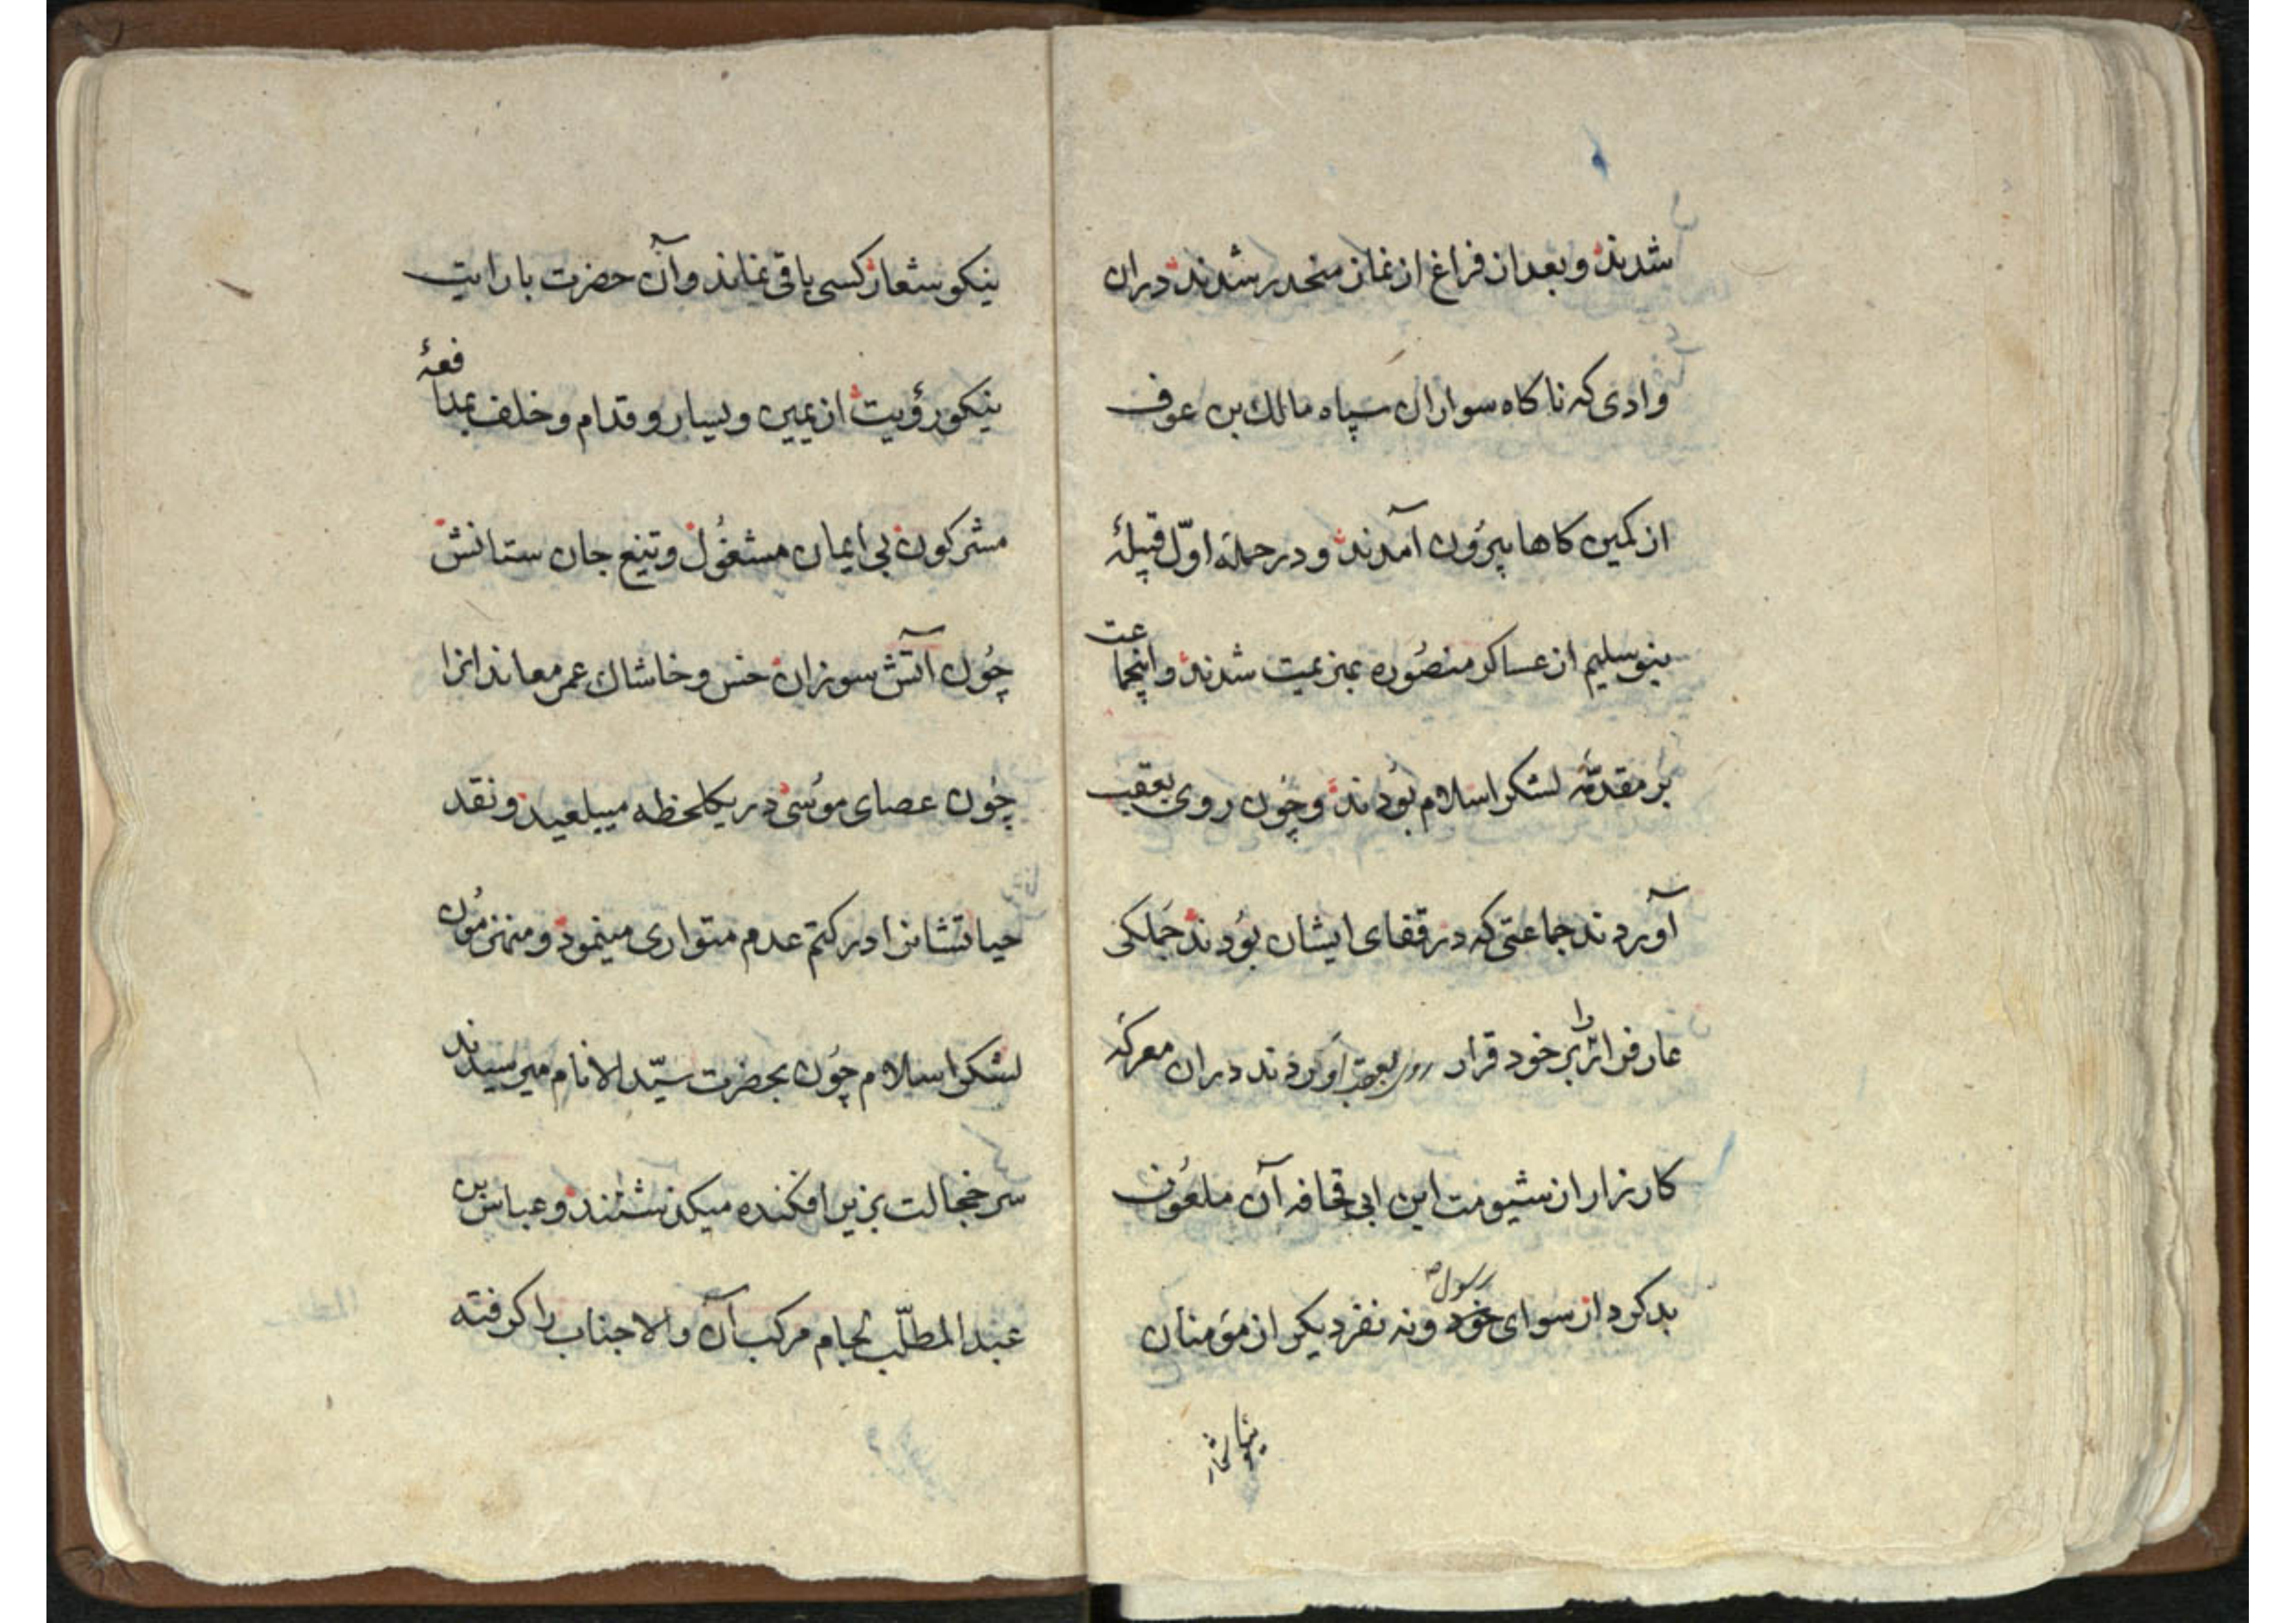 شدند و بعد از فراغ از نماز منحدر شدند دران
وادی که ناکاه سواران سپاه مالك بن عوف
از کمین کاها بیرُون آمدند و در حملهٔ اوّل قبیلهٔ
بنو سلیم از عساکر منصُوره بهزیمت شدند و اینجماعت
بر مقدمّهٔ لشکر اسلام بُودند و چُون روی بعقب
آوردند جماعتی که در قفای ایشان بُودند جَملکی
عار فرار را بر خود قرار روی بعقب آوردند دران معرکهٔ
کارزار از شیومت ابن ابی قحافه آن ملعُون
بد کردار سوای خود رسول ص و نه نفر دیکر از مؤمنان
نیکو شعار
نیکو شعار کسی باقی نماند و آن حضرت با رایت
نیکو رؤیت از یمین و یسار و قدام و خلف بمدافعهٔ
مشرکون بی ایمان مشغُول و تیغ جان ستانش
چُون آتش سوزان خس و خاشاك عمر معاندانرا
چُون عصای موسُی در یکلحظه میبلعید و نقد
حیاتشانرا در کتم عدم متواری مینمود و منهزمُون
لشکر اسلام چُون بحضرت سیّد الانام میرسیدند
سر خجالت بزیر افکنده میکذشتند و عباس بن
عبد المطلّب لجام مرکب آن والاجناب را کرفته